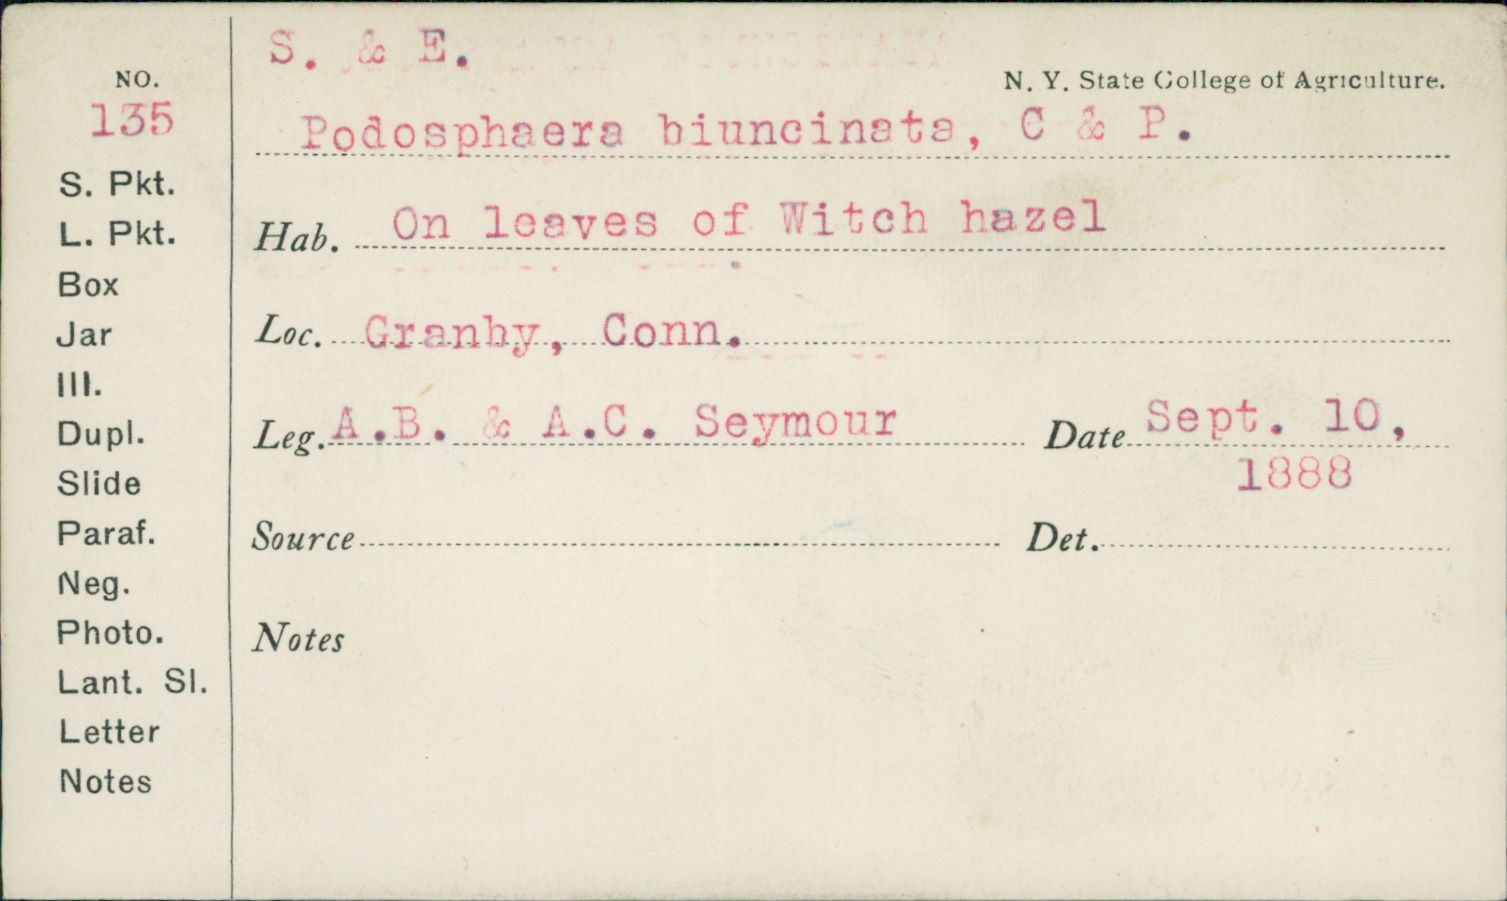 S. & E.
N. Y. State College of Agriculture.
NO.
135
Podosphaera biuncinata, C & P.
S. Pkt.
L. Pkt.
Box
Jar
Ill.
Dupl.
Slide
Paraf.
Neg.
Photo.
Lant. Sl.
Letter
Notes
Hab. On leaves of Witch hazel
Loc. Granby, Conn.
Leg. A.B. & A.C. Seymour Date Sept. 10,
1888
Source Det.
Notes